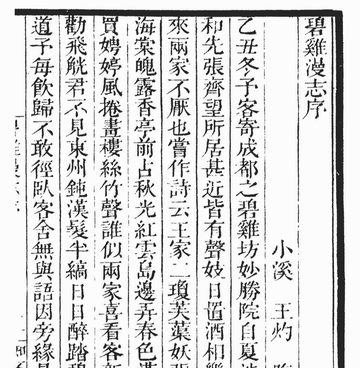 碧雞漫志序
小溪 王灼
乙丑冬予客寄成都之碧雞坊妙勝院自夏
和先張齊望所居甚近皆有聲妓日置酒相樂
來兩家不厭也嘗作詩云王家二瓊芙蕖妖張
海棠魄露香亭前占秋光紅雲島邊弄春色
買娉婷風捲畫樓絲竹聲誰似兩家喜看客新
勸飛觥君不見東州鈍漢髮半縞日日醉踏碧
道予每飲歸不敢徑臥客舍無與語因旁緣是